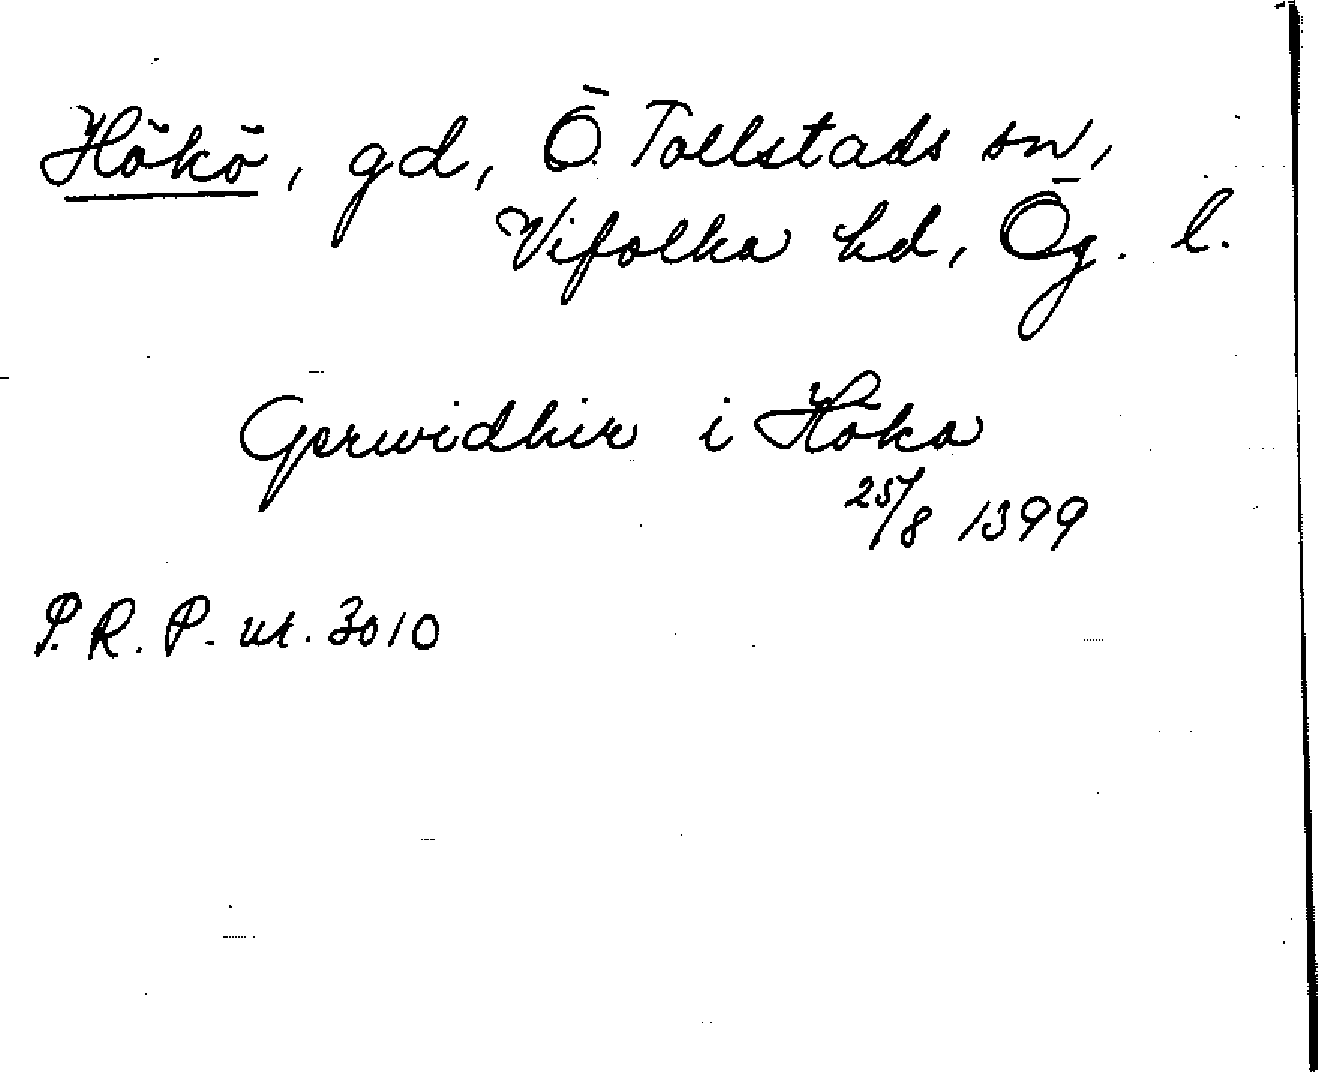 Hökö, gd, Ö Tollstads sn,
Vifolka hd, Ög. l.
Gerwidhir i Höka
25/8 1399
P. R. P. nr. 3010